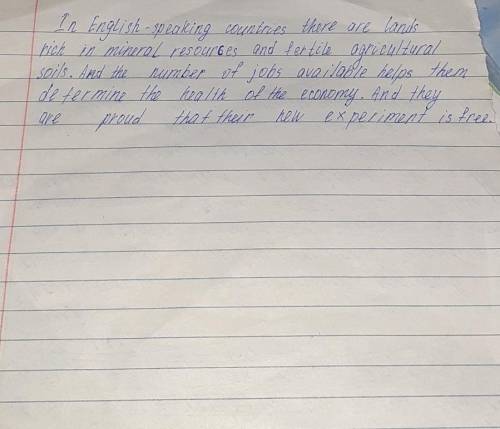 In English-speaking countries there are lands
rich in mineral resources and fertile agricultural
soils. And the number of jobs available helps them
determine the health of the economy. And they
are proud that their new experiment is free.